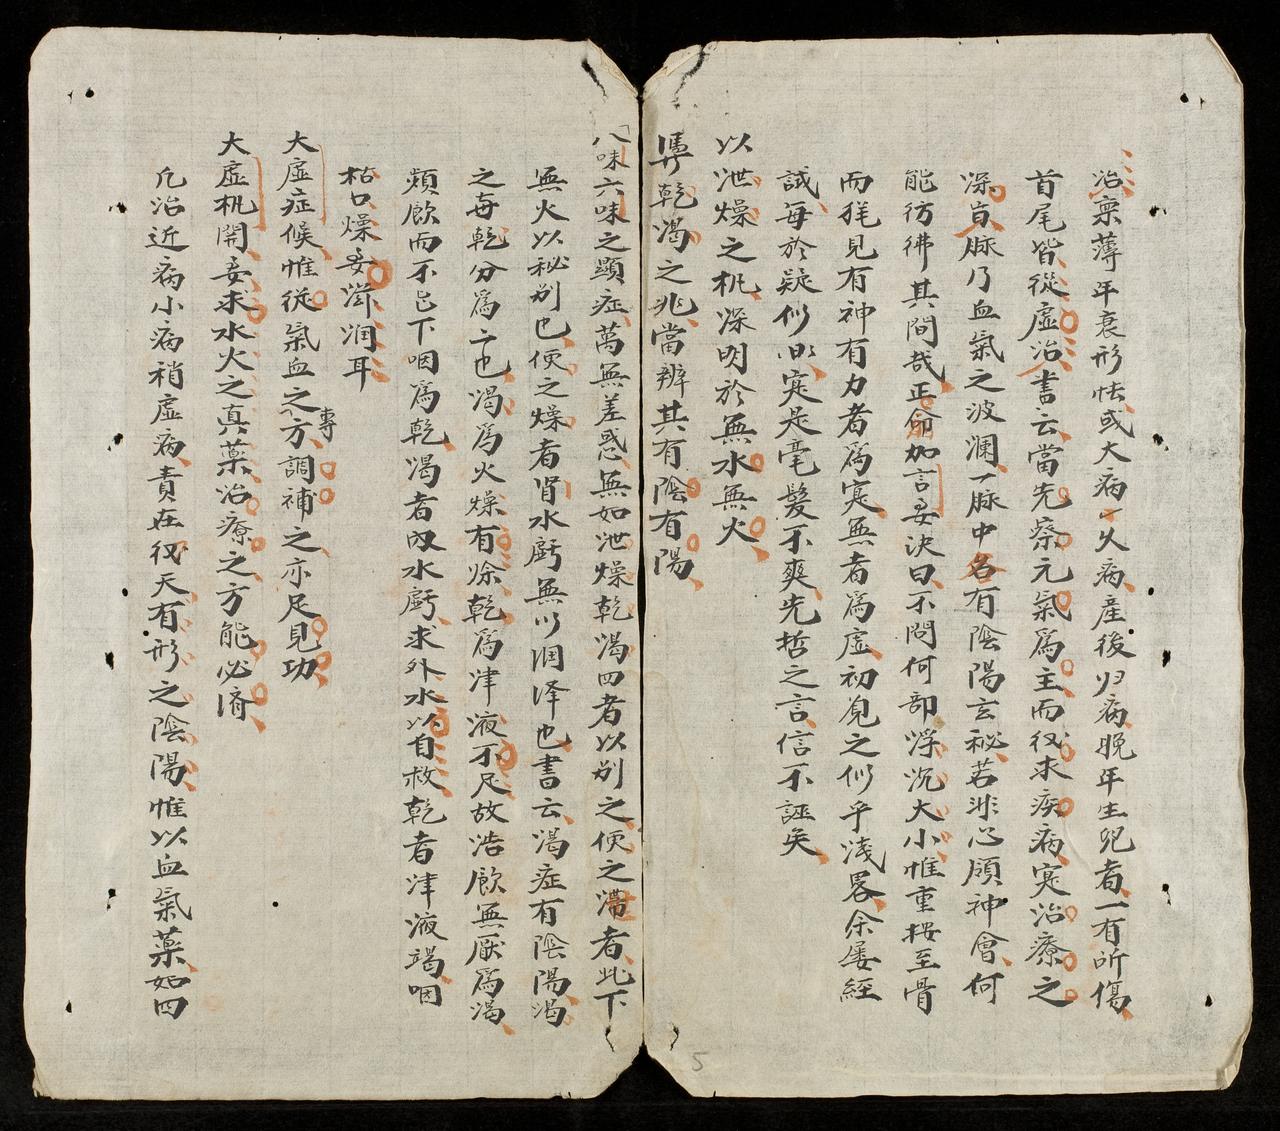 治禀薄年衰形怯或大病一久病産後归病晚年生兒者一有所傷
首尾皆從虛治書云當先察元氣爲主而後求疾病寔治療之
深旨脉乃血氣之波瀾一脉中名有陰陽玄秘若非心頋神會何
能彷彿其間哉正命加言妄決曰不問何部浮沉大小惟重按至骨
而猶見有神有力者爲寔無者爲虛初覓之似乎淺畧余屢經
試每於疑似以寔是毫髮不爽先哲之言信不誣矣
以泄燥之机深明於無水無火
憑乾渴之兆當辨其有陰有陽
八味六味之顯症萬無差惑無如泄燥乾渴四者以别之便之滯者此下
無火以秘别也便之燥者肾水虧無以润泽也書云渴症有陰陽渴
之每乾分爲二也渴爲火燥有馀乾爲津液不足故浩飲無厭爲渴
頻飲而不已下咽爲乾渴者内水虧求外水以自救乾者津液竭咽
枯口燥妄滋润耳
大虛症候惟從氣血之方專調補之亦足見功
大虛机開妄求水火之真藥治療之方能必濟
凡治近病小病稍虛病責在後天有形之陰陽惟以血氣藥如四
5